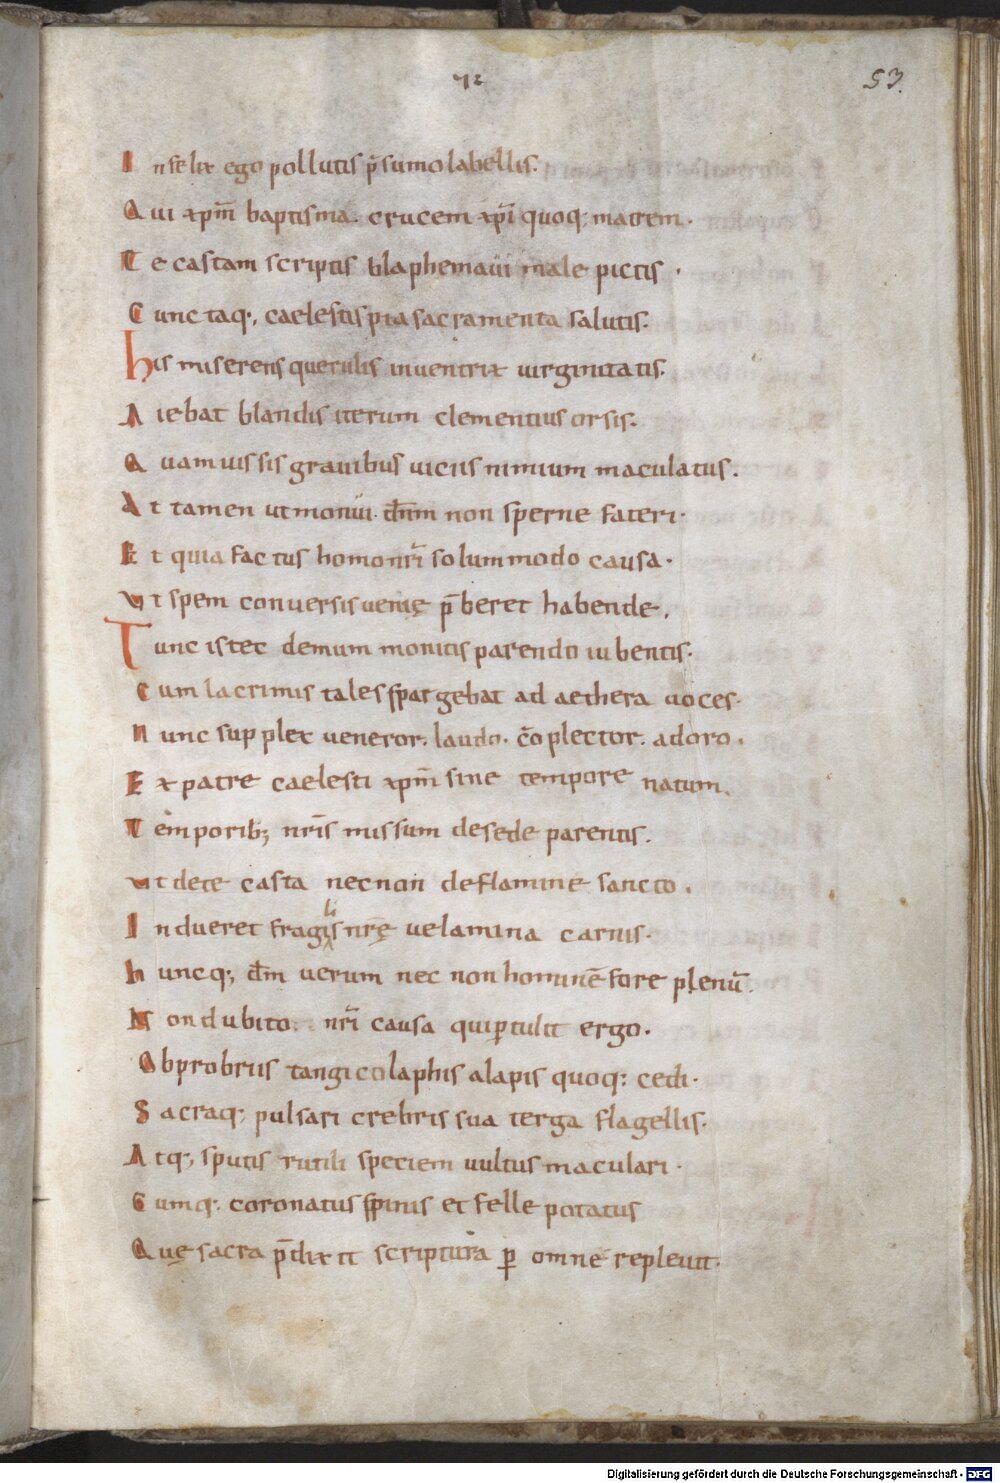 72
53.
Infelix ego pollutis p̄sumo labellis.
Qui xpm̄ baptisma. crucem xpī quoq; matrem.
Te castam scriptis blaphemaui male pictis.
Cunctaq; caelestis pia sacramenta salutis.
His miserens querulis inuentrix uirginitatis.
Aiebat blandis iterum clementius orsis.
Quamuis sis grauibus uiciis nimium maculatus.
Attamen ut monui. dn̄m non sperne fateri.
Et quia factus homo nr̄i solummodo causa.
Vt spem conuersis uenię p̄beret habende.
Tunc istec demum monitis parendo iubentis.
Cum lacrimis tales spargebat ad aethera uoces.
Nunc supplex ueneror. laudo. cō plector. adoro.
Ex patre caelesti xpm̄ sine tempore natum.
Temporib; nr̄is missum de sede parentis.
Vt de te casta necnon de flamine sancto.
Indueret fragilis nr̄ę uelamina carnis.
Huncq; dm̄ uerum nec non hominē fore plenū.
Non dubito. nr̄i causa qui ptulit ergo.
Obprobriis tangi colaphis alapis quoq; cedi.
Sacraq; pulsari crebris sua terga flagellis.
Atq; sputis rutili speciem uultus maculari.
Cumq; coronatus spinis et felle potatus
Quę sacra p̄dixit scriptura p omne repleuit.
Digitalisierung gefördert durch die Deutsche Forschungsgemeinschaft - DFG